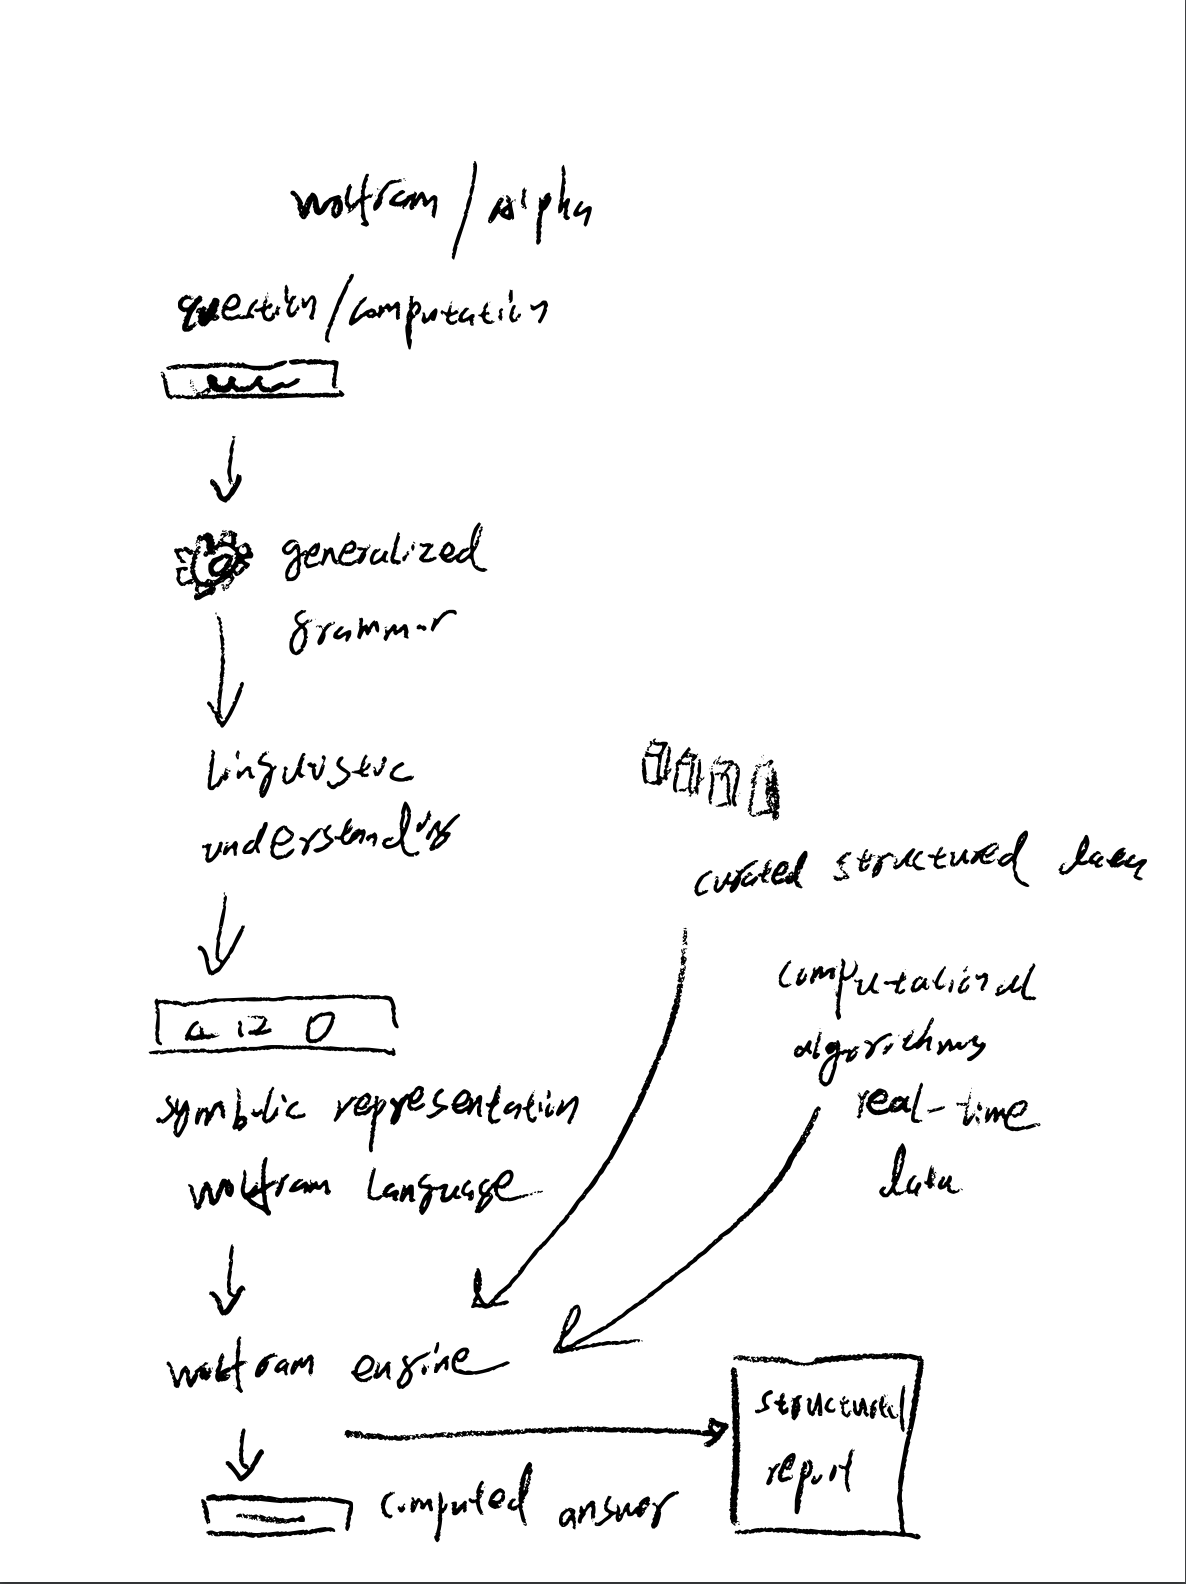 wolfram / alpha
question / computation
generalized
grammar
linguistic
understanding
curated structured data
computational
algorithms
real-time
data
symbolic representation
wolfram language
wolfram engine
structured
report
computed answer